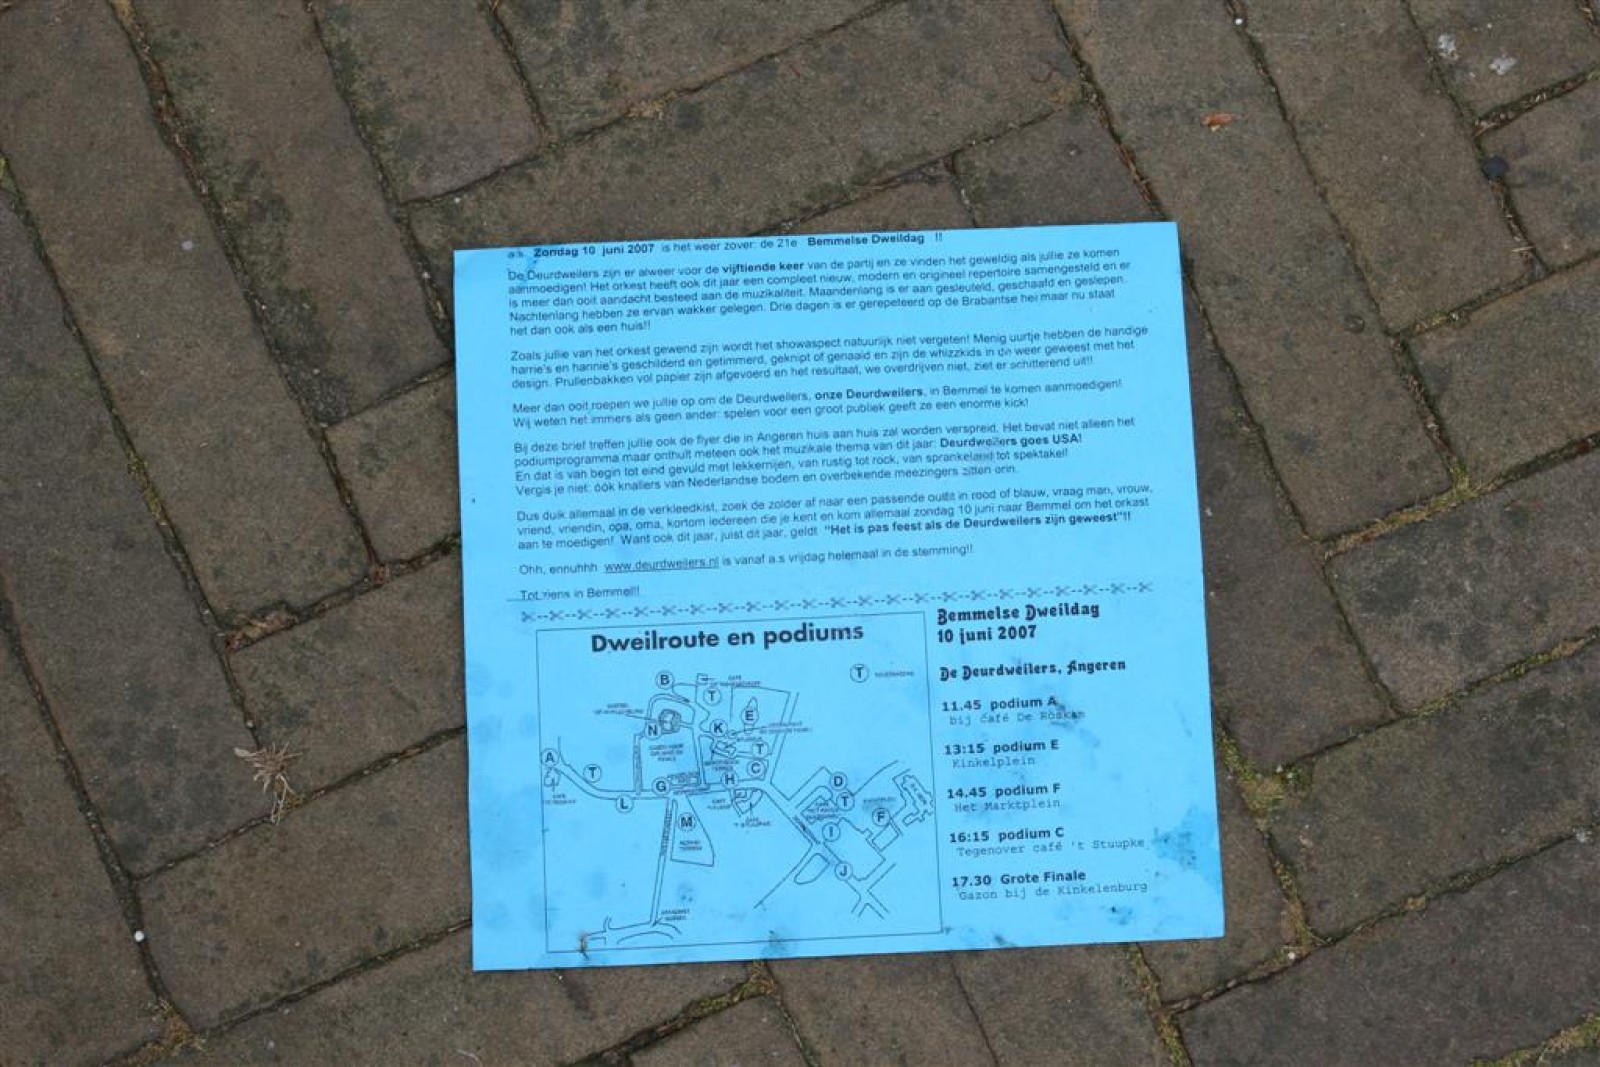 a.s. Zondag 10 juni 2007 is het weer zover: de 21e Bemmelse Dweildag !!
De Deurdweilers zijn er alweer voor de vijftiende keer van de partij en ze vinden het geweldig als jullie ze komen
aanmoedigen! Het orkest heeft ook dit jaar een compleet nieuw, modern en origineel repertoire samengesteld en er
is meer dan ooit aandacht besteed aan de muzikaliteit. Maandenlang is er aan gesleuteld, geschaafd en geslepen.
Nachtenlang hebben ze ervan wakker gelegen. Drie dagen is er gerepeteerd op de Brabantse hei maar nu staat
het dan ook als een huis!!
Zoals jullie van het orkest gewend zijn wordt het showaspect natuurlijk niet vergeten! Menig uurtje hebben de handige
harrie's en hannie's geschilderd en getimmerd, geknipt of genaaid en zijn de whizzkids in de weer geweest met het
design. Prullenbakken vol papier zijn afgevoerd en het resultaat, we overdrijven niet, ziet er schitterend uit!!
Meer dan ooit roepen we jullie op om de Deurdweilers, onze Deurdweilers, in Bemmel te komen aanmoedigen!
Wij weten het immers als geen ander: spelen voor een groot publiek geeft ze een enorme kick!
Bij deze brief treffen jullie ook de flyer die in Angeren huis aan huis zal worden verspreid. Het bevat niet alleen het
podiumprogramma maar onthult meteen ook het muzikale thema van dit jaar: Deurdweilers goes USA!
En dat is van begin tot eind gevuld met lekkernijen, van rustig tot rock, van sprankelend tot spektakel!
Vergis je niet: óók knallers van Nederlandse bodem en overbekende meezingers zitten erin.
Dus duik allemaal in de verkleedkist, zoek de zolder af naar een passende outfit in rood of blauw, vraag man, vrouw,
vriend, vriendin, opa, oma, kortom iedereen die je kent en kom allemaal zondag 10 juni naar Bemmel om het orkast
aan te moedigen! Want ook dit jaar, juist dit jaar, geldt "Het is pas feest als de Deurdweilers zijn geweest"!!
Ohh, ennuhhh www.deurdweilers.nl is vanaf a.s vrijdag helemaal in de stemming!!
Tot ziens in Bemmel!!
Dweilroute en podiums
B
T
T
E
N
K
A
T
T
C
G
H
L
D
T
M
F
I
J
Bemmelse Dweildag
10 juni 2007
De Deurdweilers, Angeren
11.45 podium A
bij café De Roskam
13:15 podium E
Kinkelplein
14.45 podium F
Het Marktplein
16:15 podium C
Tegenover café 't Stuupke
17.30 Grote Finale
Gazon bij de Kinkelenburg